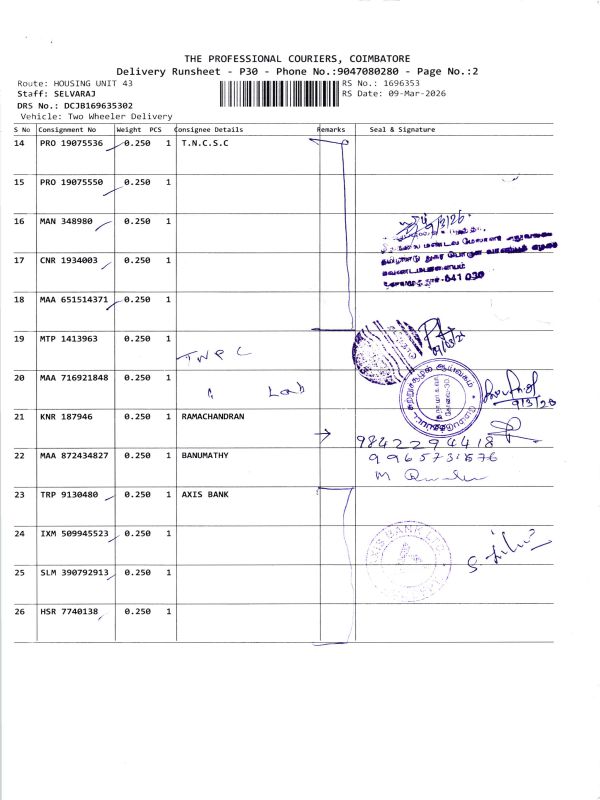 THE PROFESSIONAL COURIERS, COIMBATORE
Delivery Runsheet - P30 - Phone No.:9047080280 - Page No.:2
Route: HOUSING UNIT 43
RS No.: 1696353
Staff: SELVARAJ
RS Date: 09-Mar-2026
DRS No.: DCJB169635302
Vehicle: Two Wheeler Delivery
S No Consignment No Weight PCS Consignee Details Remarks Seal & Signature
14 PRO 19075536 0.250 1 T.N.C.S.C
15 PRO 19075550 0.250 1
16 MAN 348980 0.250 1
9/3/26
17 CNR 1934003 0.250 1
641 030
18 MAA 651514371 0.250 1
19 MTP 1413963 0.250 1
09/03/26
20 MAA 716921848 0.250 1
Lab
9/3/26
21 KNR 187946 0.250 1 RAMACHANDRAN
9842294418
22 MAA 872434827 0.250 1 BANUMATHY
9965731576
23 TRP 9130480 0.250 1 AXIS BANK
24 IXM 509945523 0.250 1
AXIS BANK LTD
25 SLM 390792913 0.250 1
26 HSR 7740138 0.250 1